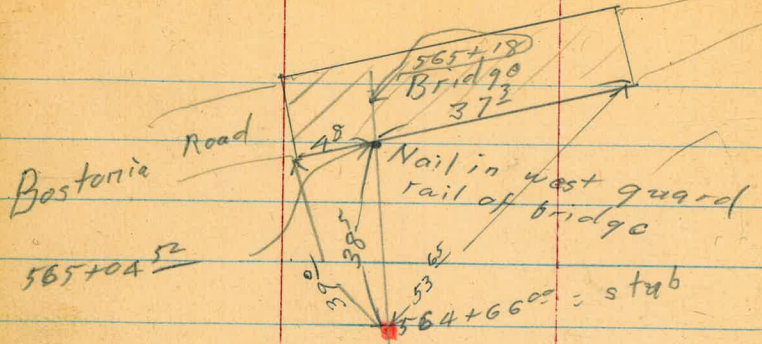 565+18
Bridge
37³
4⁸
Bostonia Road
Nail in west guard
rail of bridge
565+04⁵²
39⁰
38⁵
53⁶⁵
564+66⁰⁰ = stub